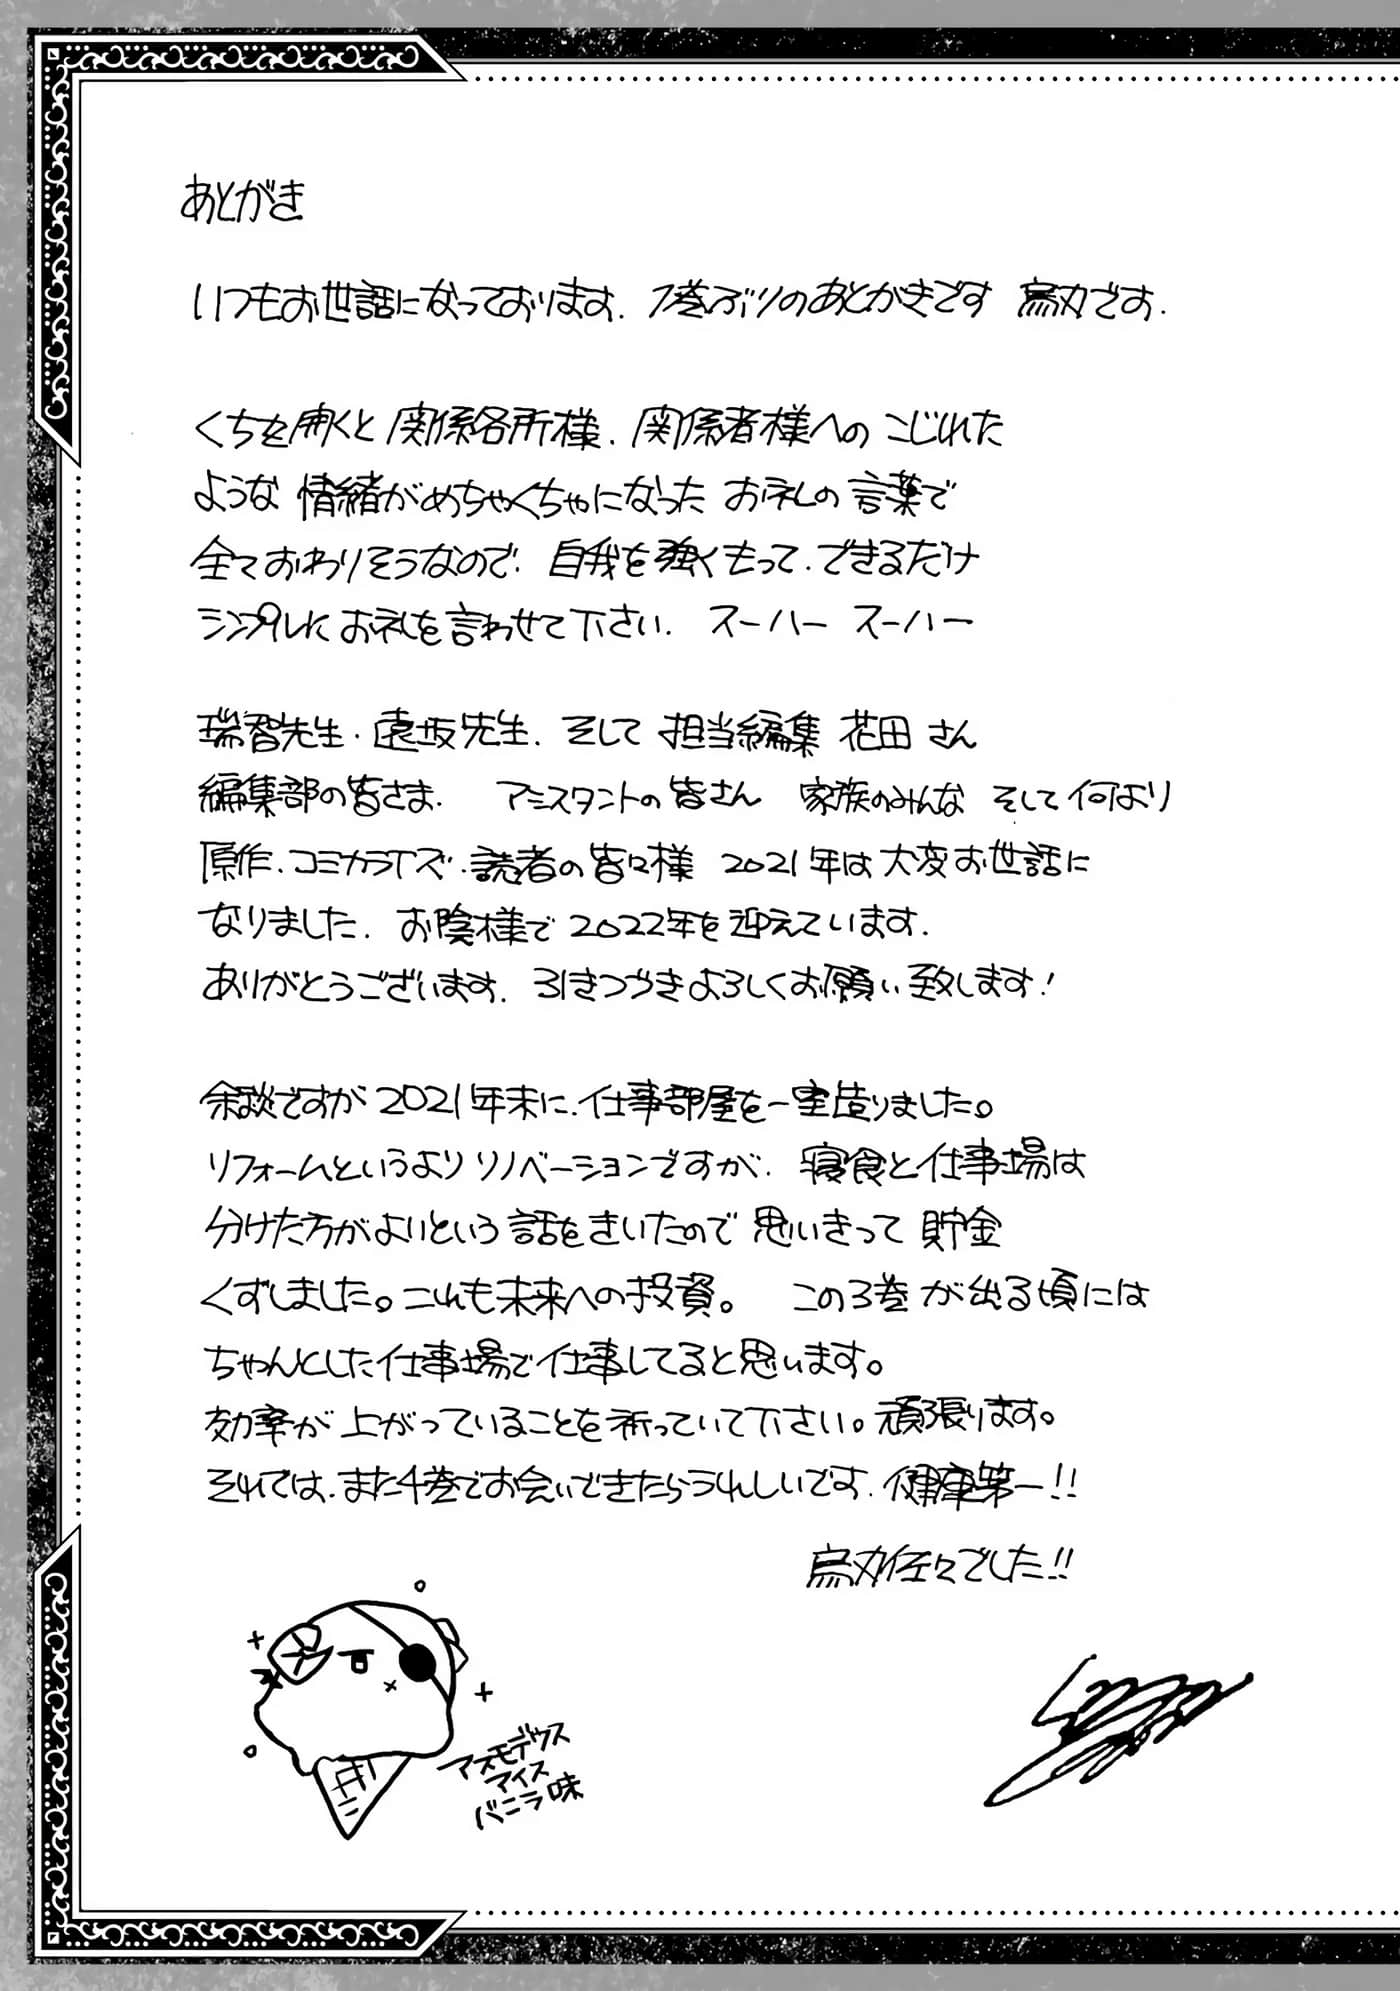 あとがき
いつもお世話になっております. 1巻ぶりのあとがきです 烏丸です.
くちを開くと 関係各所様. 関係者様への こじれた
ような 情緒がめちゃくちゃになった お礼の 言葉で
全ておわりそうなので. 自我を強くもって. できるだけ
シンプルに お礼を言わせて下さい. スーハー スーハー
瑞智先生. 遠坂先生. そして 担当編集 花田さん
編集部の皆さま. アシスタントの皆さん 家族のみんな そして何より
原作. コミカライズ. 読者の皆々様 2021年は大変お世話に
なりました. お陰様で2022年を迎えています.
ありがとうございます. 引きつづきよろしくお願い致します!
余談ですが2021年末に. 仕事部屋を一室造りました。
リフォームというよりリノベーションですが. 寝食と仕事場は
分けた方がよいという話をきいたので思いきって 貯金
くずしました。これも未来への投資。 この3巻が出る頃には
ちゃんとした仕事場で仕事してると思います。
効率が上がっていることを祈っていて下さい。頑張ります。
それでは. また4巻でお会いできたらうれしいです. 健康第一!!
烏丸佐々でした!!
アスモデウス
アイス
バニラ味